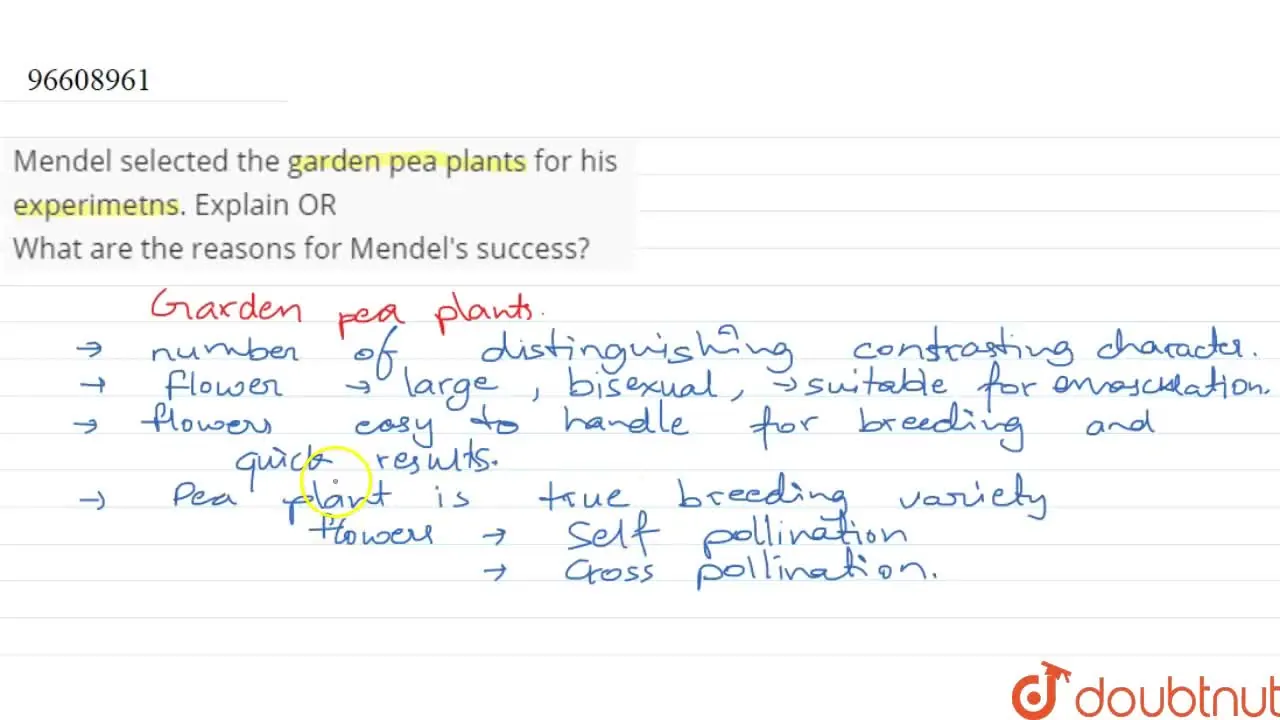 96608961
Mendel selected the garden pea plants for his
experimetns. Explain OR
What are the reasons for Mendel's success?
Garden pea plants.
→ number of distinguishing contrasting character.
→ flower → large, bisexual, → suitable for emasculation.
→ flowers easy to handle for breeding and
quick results.
→ Pea plant is true breeding variety
flowers → Self pollination
→ Cross pollination.
doubtnut